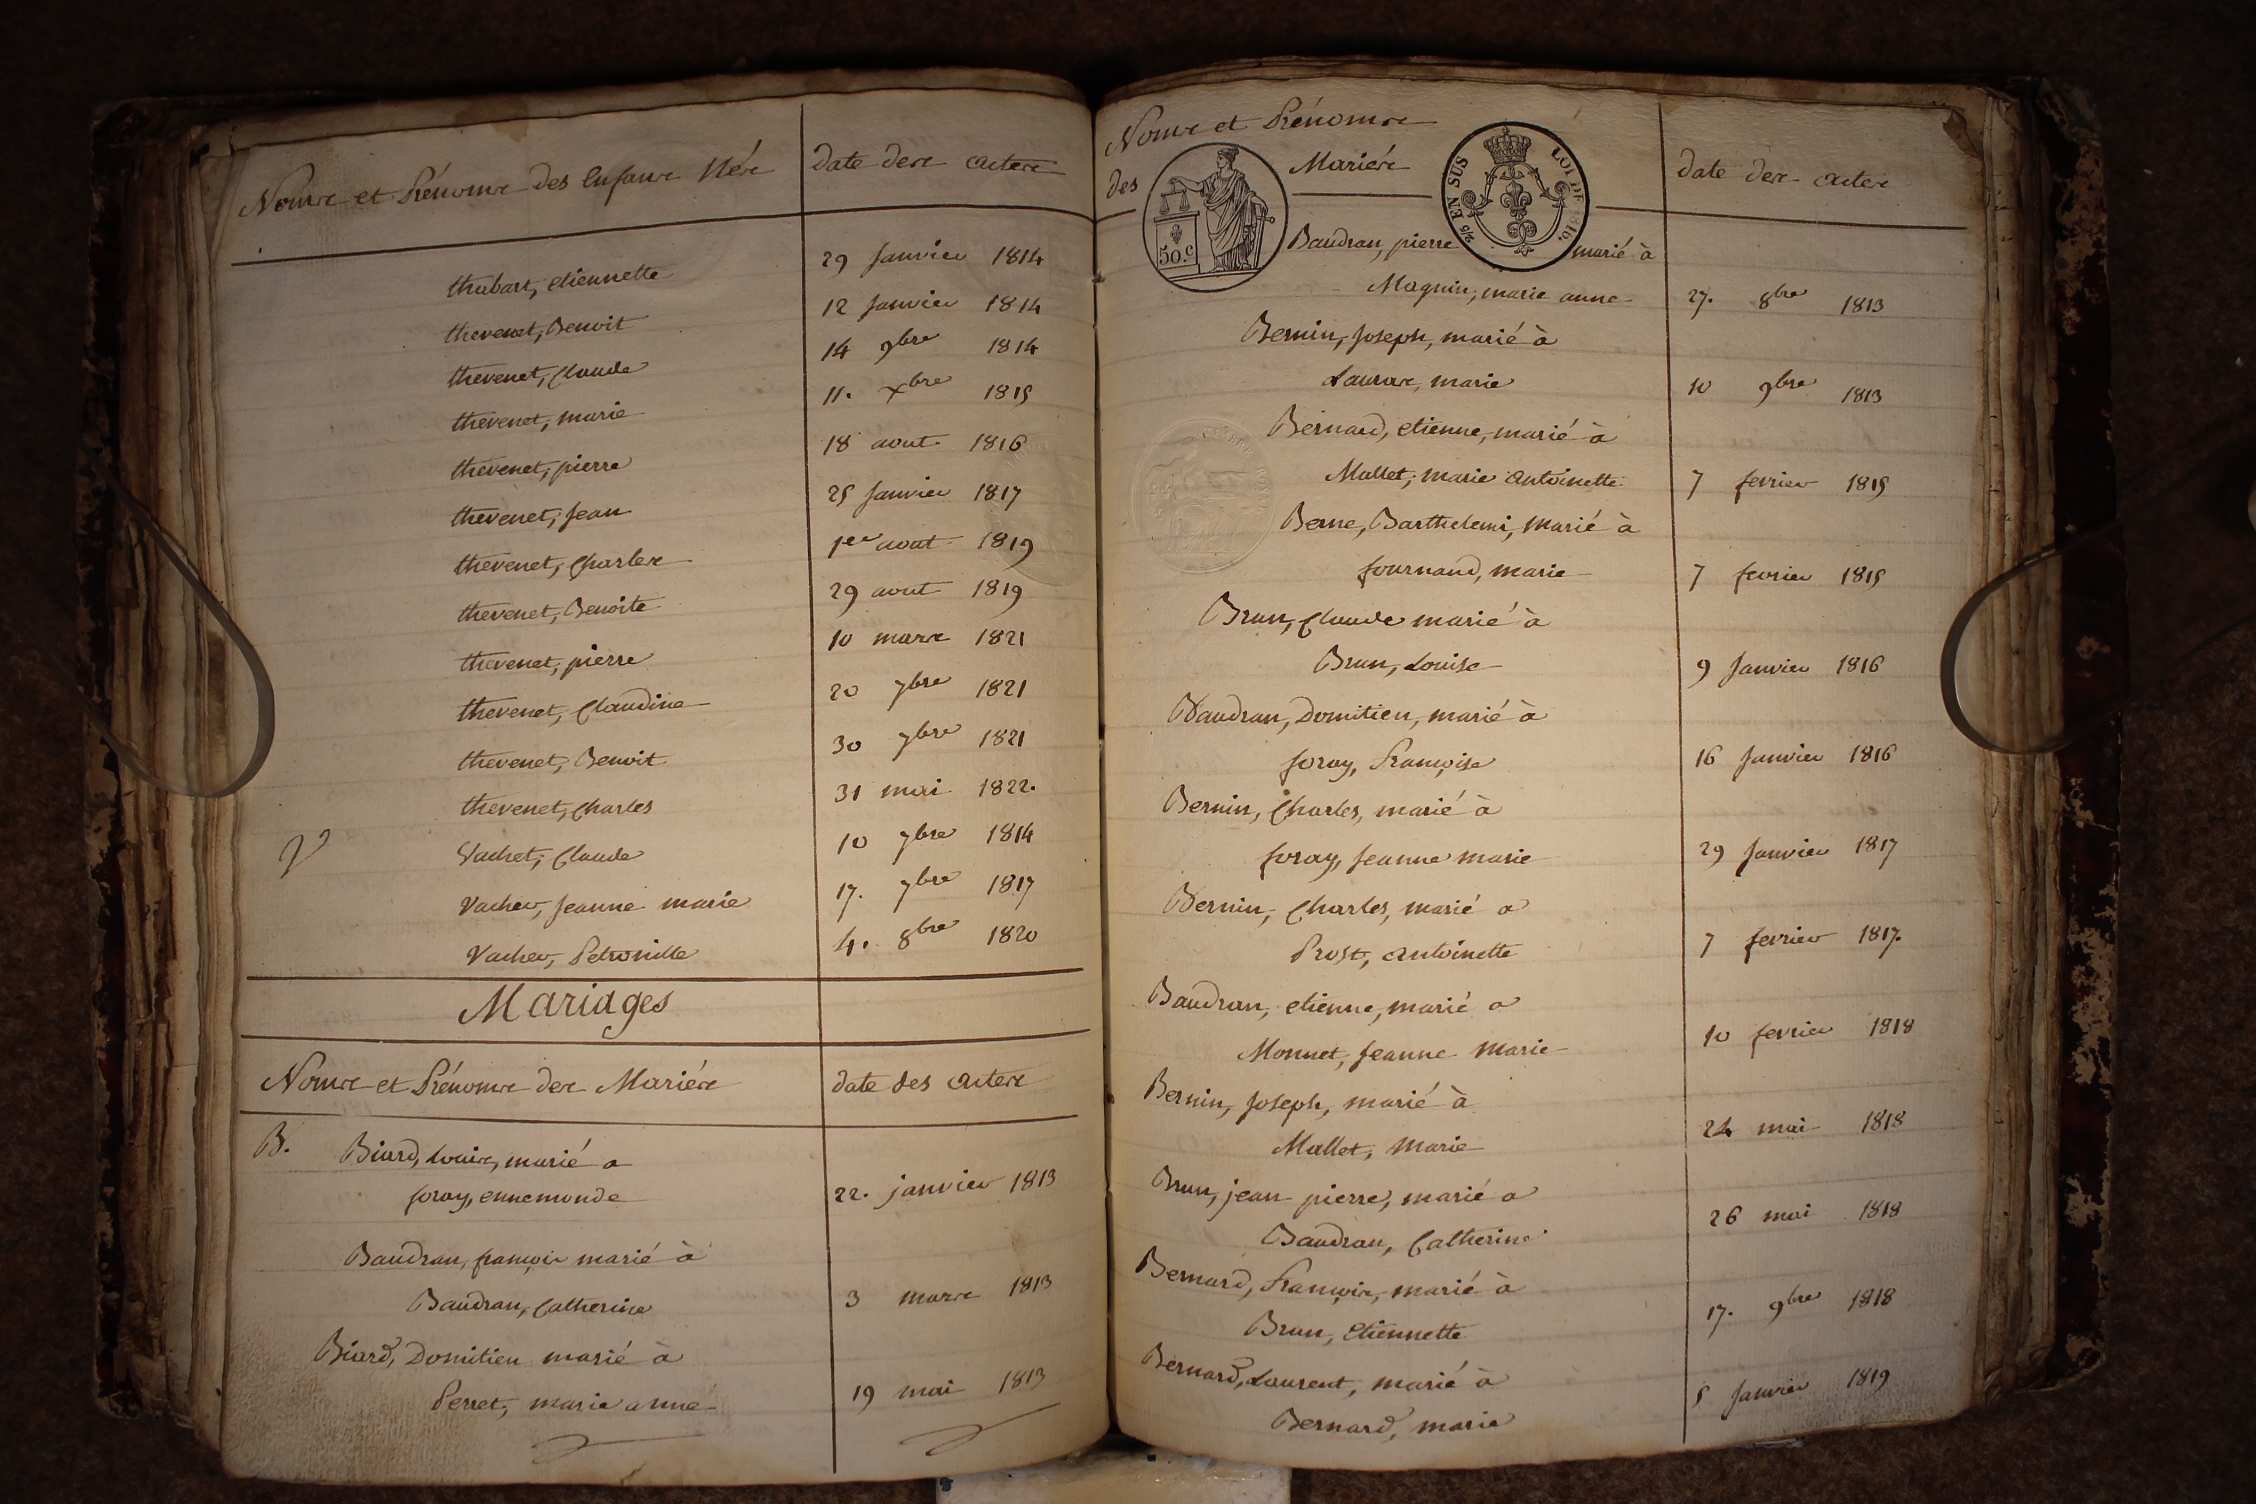 Noms et Prénoms des Enfans Nés date des actes
thubart, etiennette 29 Janvier 1814
thevenet, Benoit 12 Janvier 1814
thevenet, Claude 14 9bre 1814
thevenet, marie 11. xbre 1815
thevenet, pierre 18 aout 1816
thevenet, Jean 25 Janvier 1817
thevenet, Charles 1er aout 1819
thevenet, Benoite 29 aout 1819
thevenet, pierre 10 mars 1821
thevenet, Claudine 20 7bre 1821
thevenet, Benoit 30 7bre 1821
thevenet, Charles 31 mai 1822.
V Vachet, Claude 10 7bre 1814
Vacher, Jeanne marie 17. 7bre 1817
Vacher, Petronille 4. 8bre 1820
Mariages
Noms et Prénoms des Mariés date des actes
B. Biard, Louis, marié a
foray, ennemonde 22. janvier 1813
Baudran, françois marié à
Baudran, Catherine 3 mars 1813
Biard, Domitien marié à
Perret, marie anne 19 mai 1813
Noms et Prénoms
des Mariés date des actes
50.c
2/5 EN SUS LOI DE 1816.
Baudran, pierre marié à
Magnin, marie anne 27. 8bre 1813
Bernin, Joseph, marié à
Lauras, marie 10 9bre 1813
Bernard, etienne, marié à
Mallet, marie antoinette 7 fevrier 1815
Berne, Barthelemi, marié à
fournand, marie 7 fevrier 1815
Brun, Claude marié à
Brun, Louise 9 Janvier 1816
Baudran, Domitien, marié à
foray, Françoise 16 Janvier 1816
Bernin, Charles, marié à
foray, Jeanne marie 29 Janvier 1817
Bernin, Charles, marié a
Prost, antoinette 7 fevrier 1817.
Baudran, etienne, marié a
Monnet, Jeanne Marie 10 fevrier 1818
Bernin, Joseph, marié à
Mallet, Marie 24 mai 1818
Brun, jean pierre, marié a
Baudran, Catherine 26 mai 1818
Bernard, François, marié à
Brun, Etiennette 17. 9bre 1818
Bernard, Laurent, marié à
Bernard, marie 5 Janvier 1819